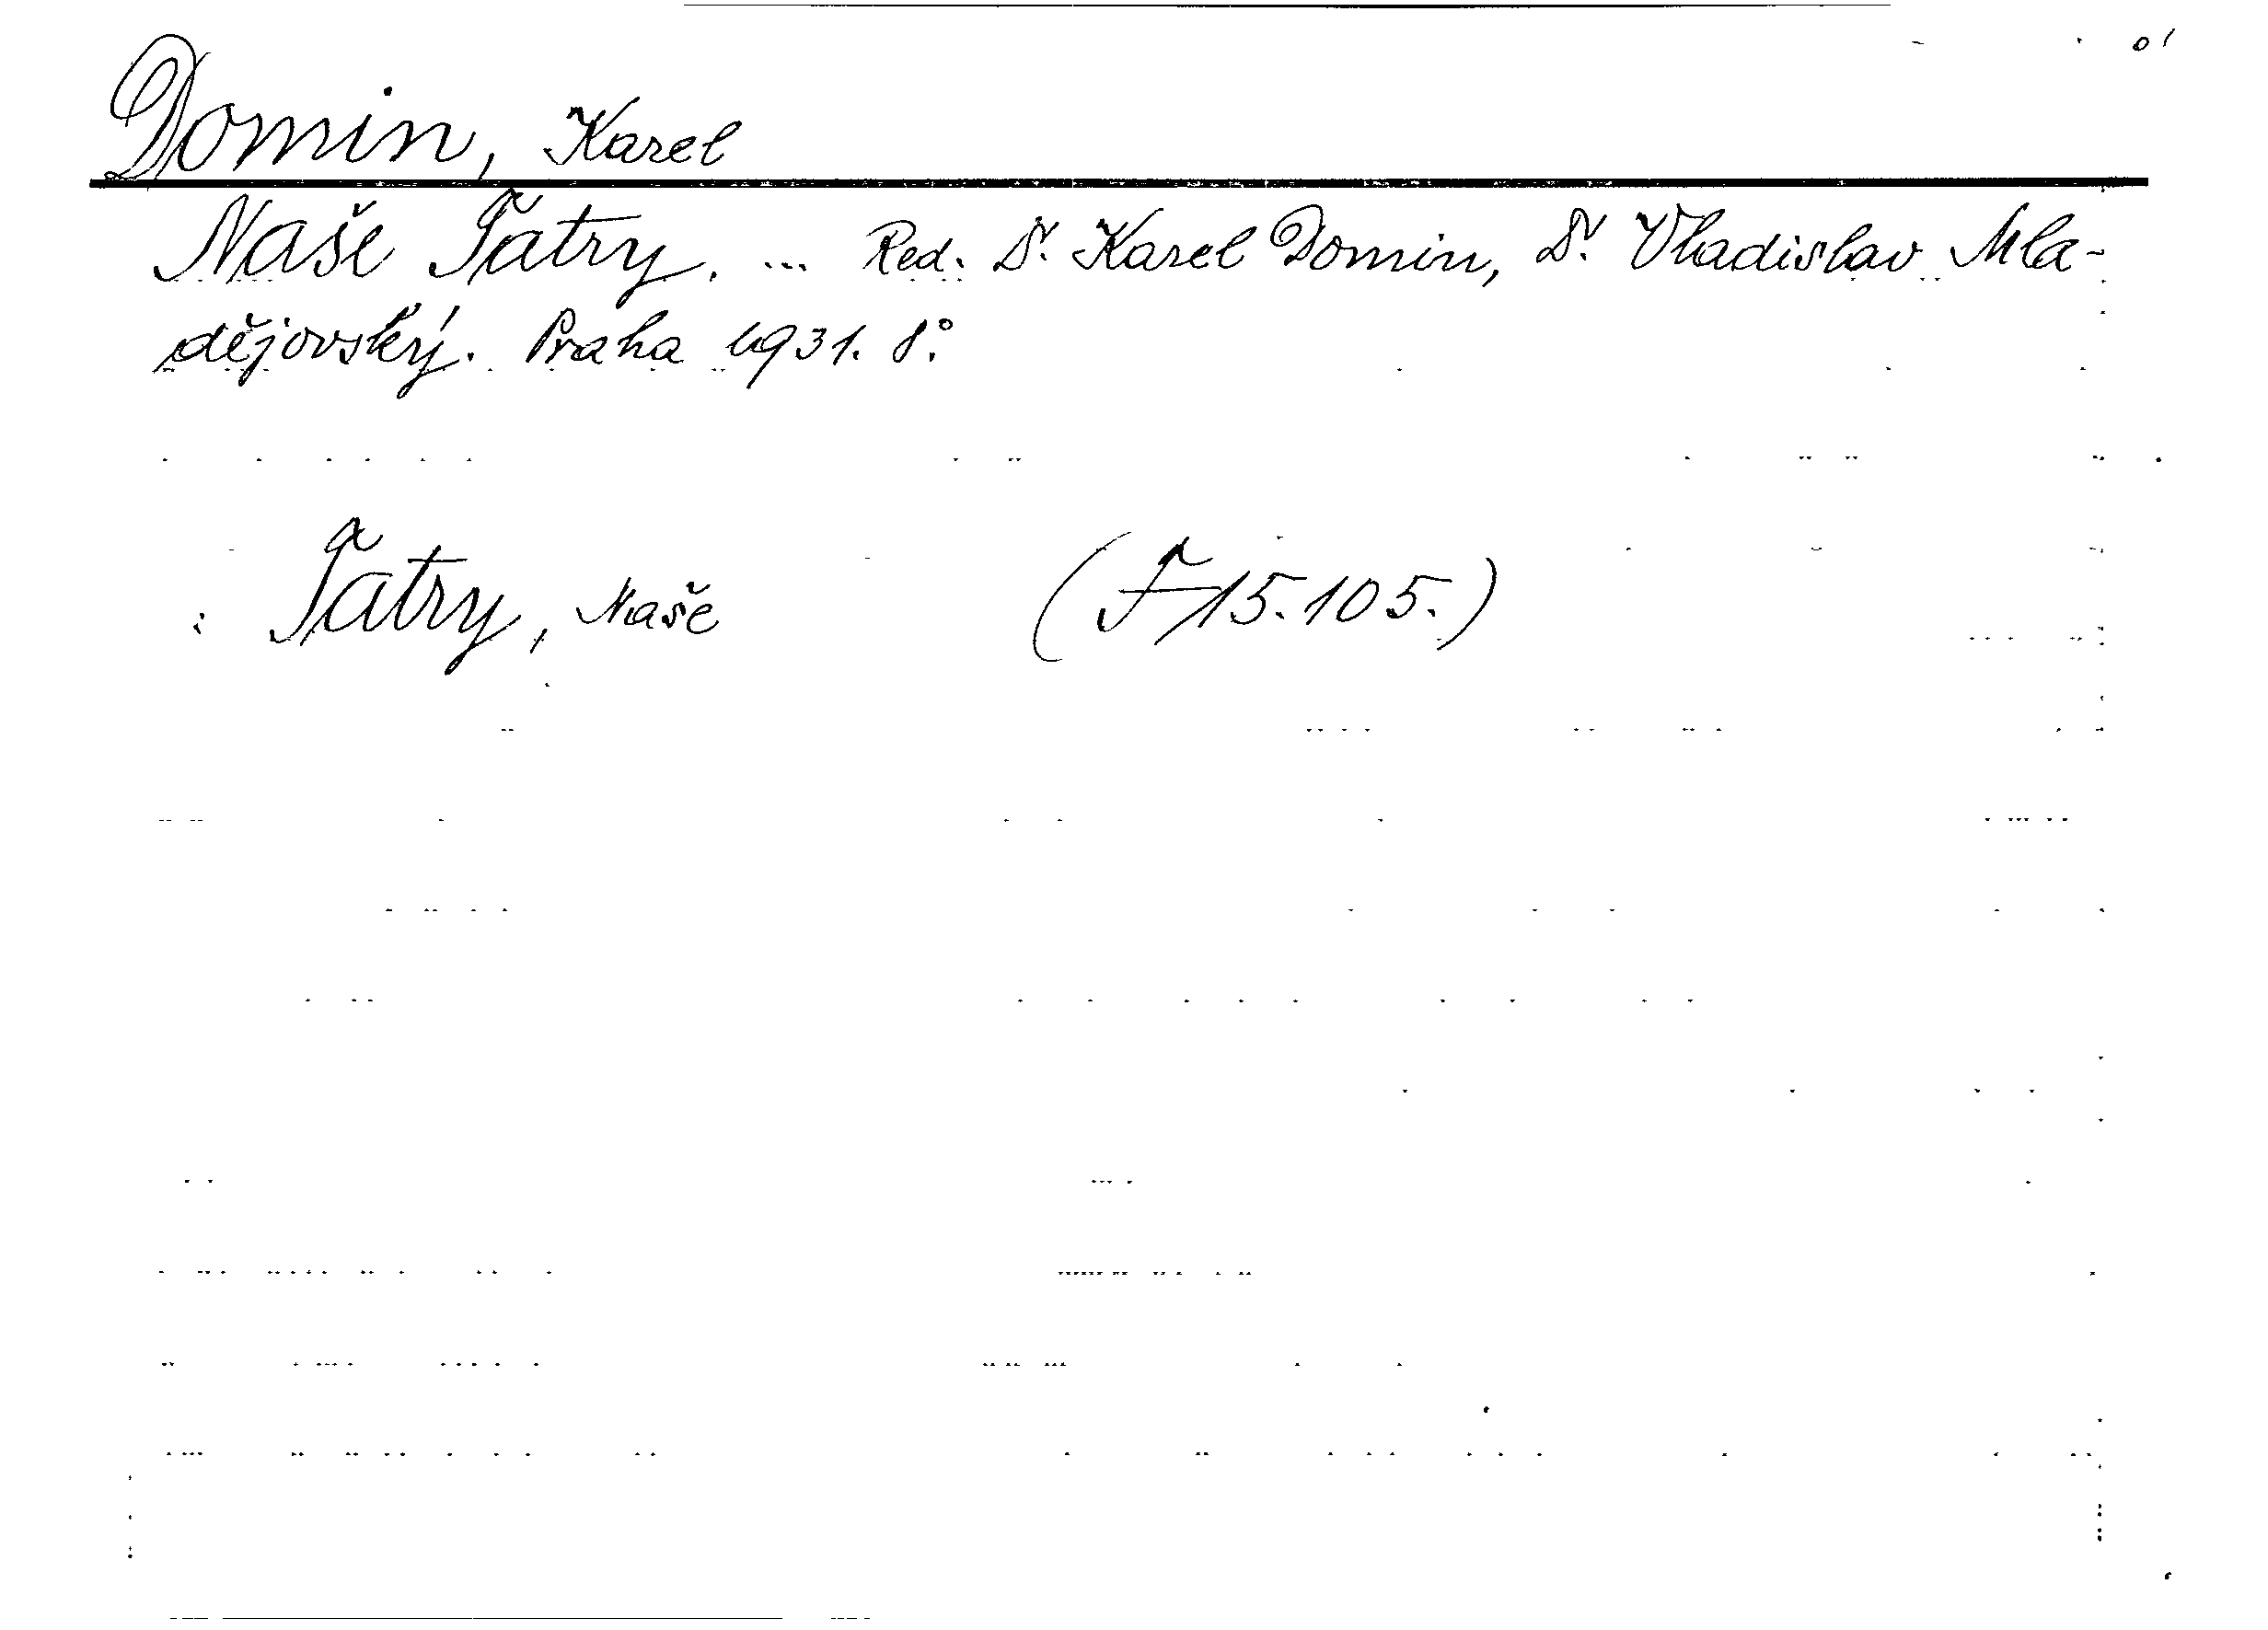 Domin, Karel
Naše Tatry. ... Red. Dr. Karel Domin, Dr. Vladislav Mla-
dějovský. Praha 1931. 8°.
Tatry, Naše (F 15.105.)